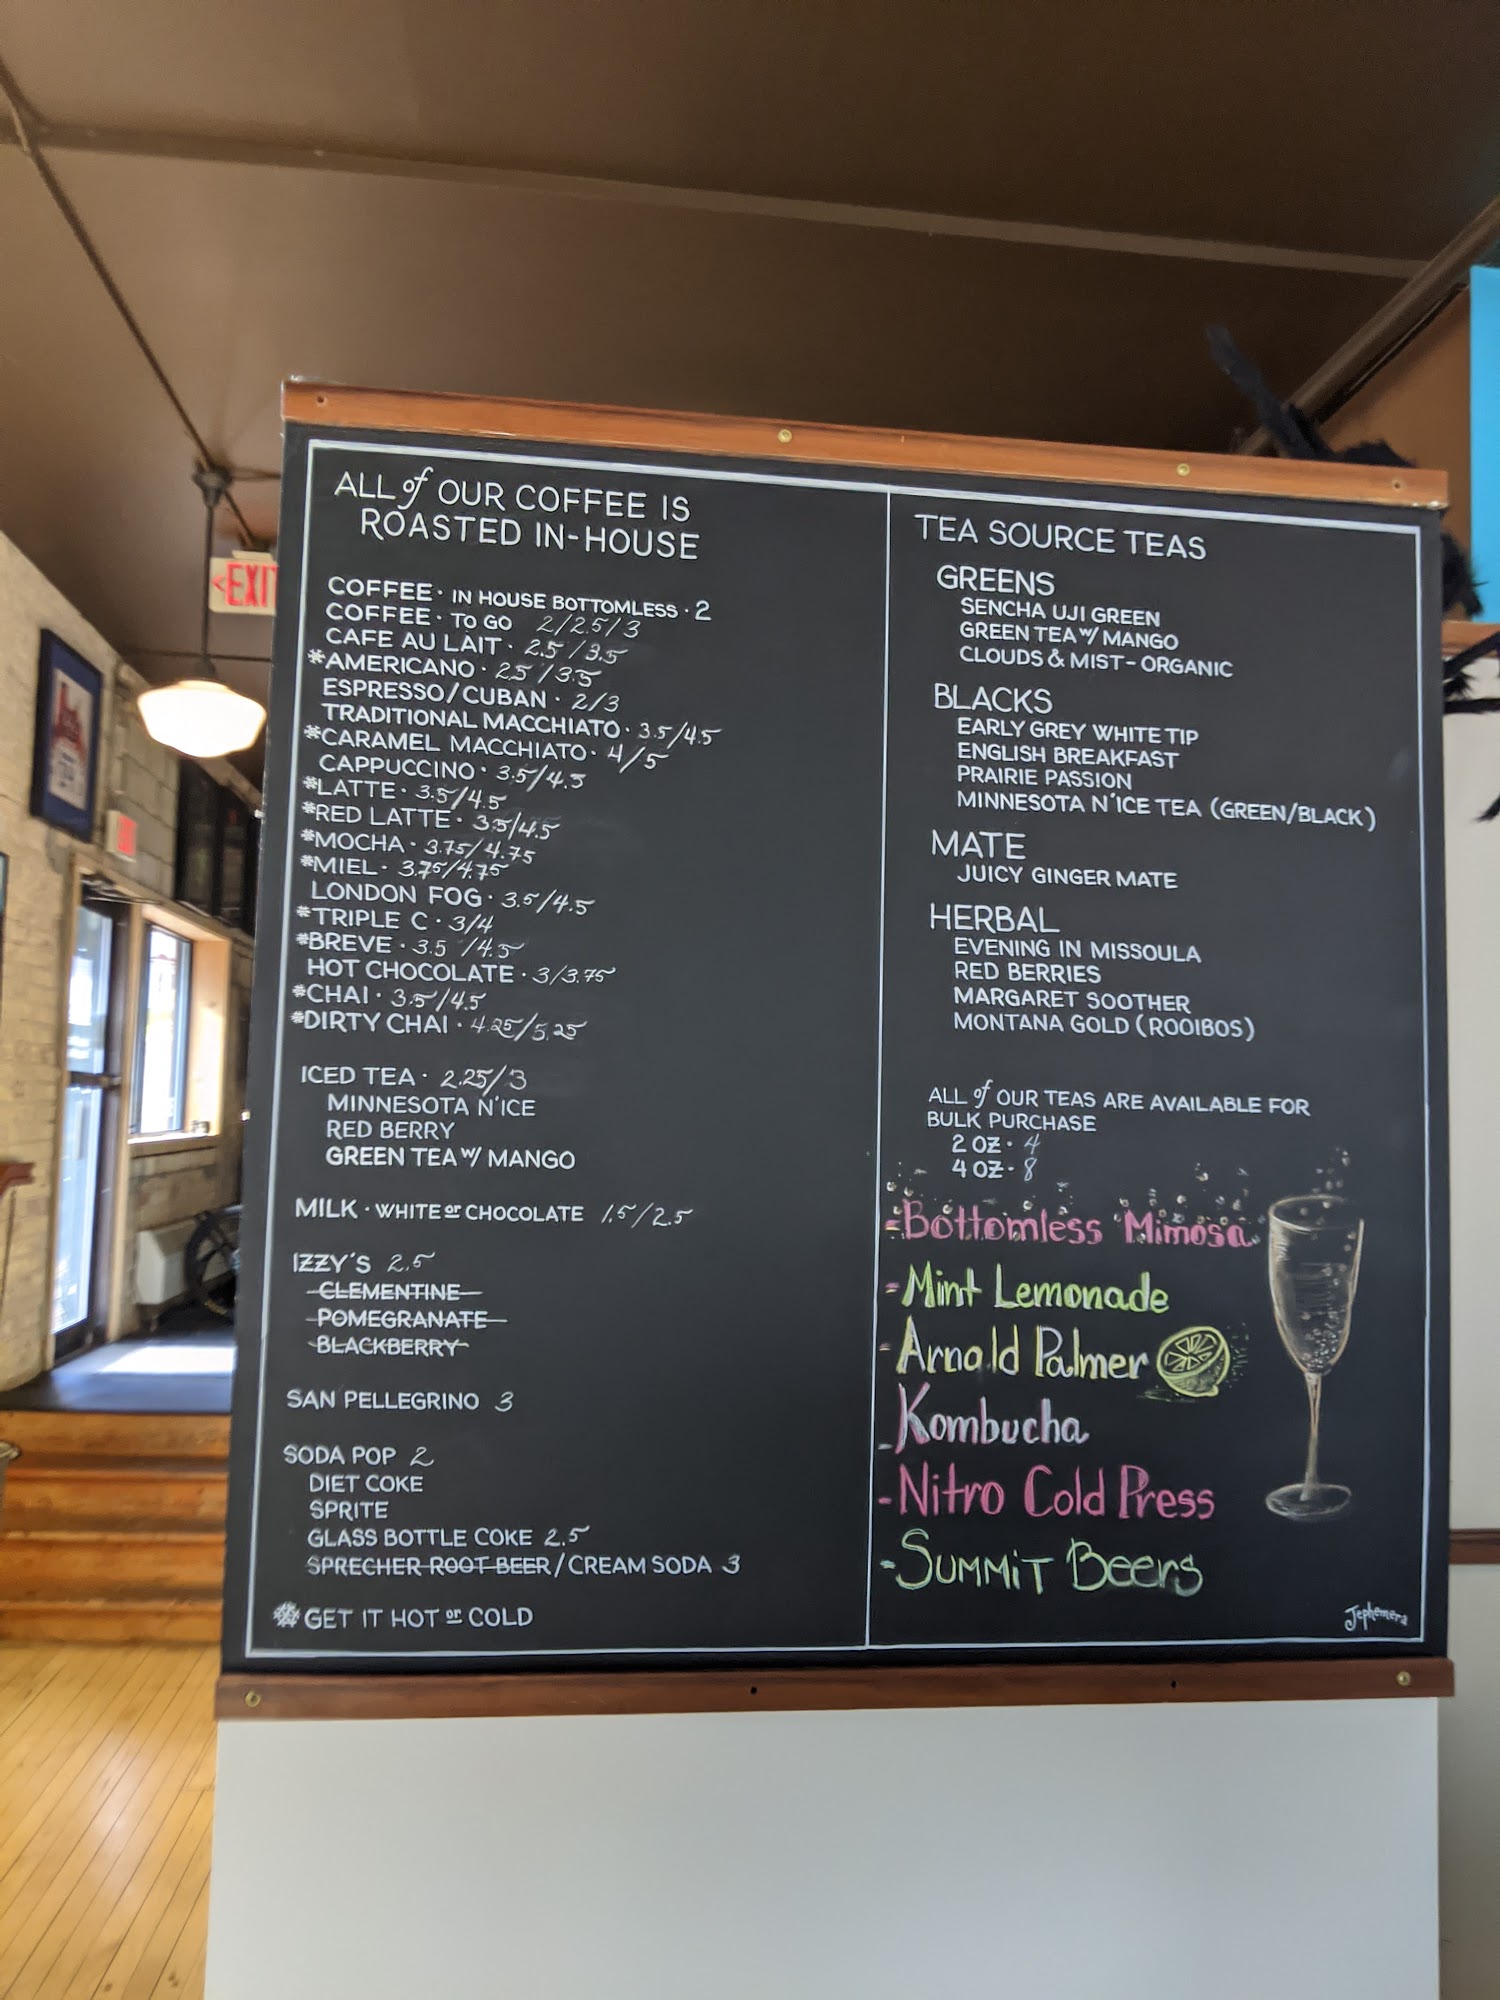 EXIT
ALL of OUR COFFEE IS
ROASTED IN-HOUSE
COFFEE · IN HOUSE BOTTOMLESS · 2
COFFEE · TO GO 2/2.5/3
CAFE AU LAIT · 2.5/3.5
*AMERICANO · 2.5/3.5
ESPRESSO/CUBAN · 2/3
TRADITIONAL MACCHIATO · 3.5/4.5
*CARAMEL MACCHIATO · 4/5
CAPPUCCINO · 3.5/4.5
*LATTE · 3.5/4.5
*RED LATTE · 3.5/4.5
*MOCHA · 3.75/4.75
*MIEL · 3.75/4.75
LONDON FOG · 3.5/4.5
*TRIPLE C · 3/4
*BREVE · 3.5/4.5
HOT CHOCOLATE · 3/3.75
*CHAI · 3.5/4.5
*DIRTY CHAI · 4.25/5.25
ICED TEA · 2.25/3
MINNESOTA N'ICE
RED BERRY
GREEN TEA W/ MANGO
MILK · WHITE or CHOCOLATE 1.5/2.5
IZZY'S 2.5
CLEMENTINE
POMEGRANATE
BLACKBERRY
SAN PELLEGRINO 3
SODA POP 2
DIET COKE
SPRITE
GLASS BOTTLE COKE 2.5
SPRECHER ROOT BEER/CREAM SODA 3
*GET IT HOT or COLD
TEA SOURCE TEAS
GREENS
SENCHA UJI GREEN
GREEN TEA W/ MANGO
CLOUDS & MIST - ORGANIC
BLACKS
EARLY GREY WHITE TIP
ENGLISH BREAKFAST
PRAIRIE PASSION
MINNESOTA N'ICE TEA (GREEN/BLACK)
MATE
JUICY GINGER MATE
HERBAL
EVENING IN MISSOULA
RED BERRIES
MARGARET SOOTHER
MONTANA GOLD (ROOIBOS)
ALL of OUR TEAS ARE AVAILABLE FOR
BULK PURCHASE
2 OZ · 4
4 OZ · 8
-Bottomless Mimosa
-Mint Lemonade
-Arnold Palmer
-Kombucha
-Nitro Cold Press
-SUMMiT Beers
Jephemera